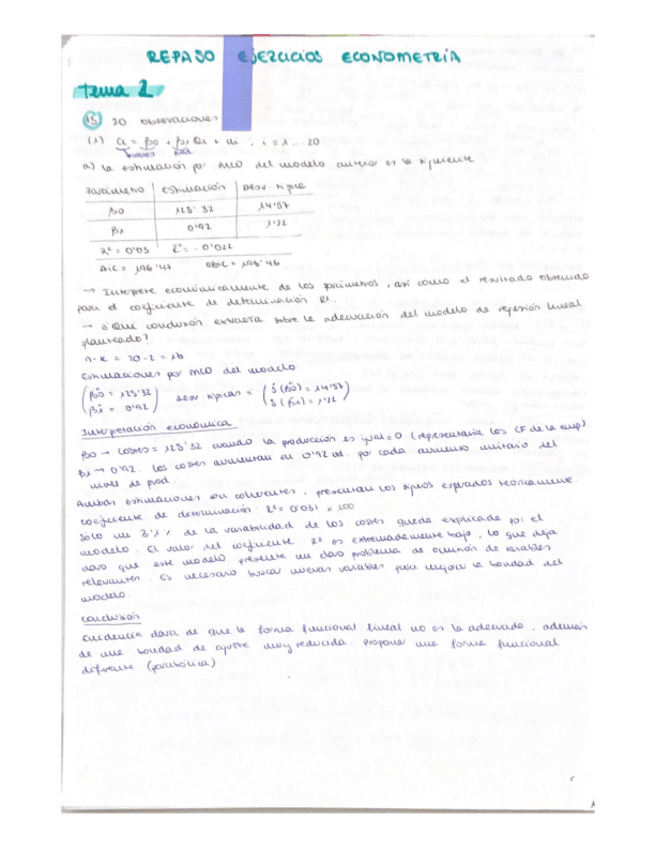 REPASO EJERCICIOS ECONOMETRÍA
Tema 2
20 observaciones
(1) Ci = β0 + β1 Qi + ui ; i = 1 ... 20
costes prod.
a) La estimación por MCO del modelo anterior es la siguiente
Parámetro Estimación Desv. típica
β0 128'32 14'57
β1 0'92 1'22
R² = 0'03 R̄² = -0'022
AIC = 196'47 SBIC = 198'46
→ Interprete económicamente de los parámetros, así como el resultado obtenido
para el coeficiente de determinación R².
→ ¿Qué conclusión extraería sobre la adecuación del modelo de regresión lineal
planteado?
n-k = 20-2 = 18
Estimaciones por MCO del modelo
(β̂0 = 128'32 desv típicas = (Ŝ(β̂0) = 14'57)
β̂1 = 0'92) Ŝ(β̂1) = 1'22)
Interpretación económica
β0 → costes = 128'32 cuando la producción es igual = 0 (representaría los CF de la emp).
β1 → 0'92. Los costes aumentan en 0'92 ud. por cada aumento unitario del
nivel de prod.
Ambas estimaciones son coherentes, presentan los signos esperados teóricamente.
Coeficiente de determinación: R² = 0'031 x 100
Solo un 3'1% de la variabilidad de los costes queda explicada por el
modelo. El valor del coeficiente R² es extremadamente bajo, lo que deja
claro que este modelo presenta un claro problema de omisión de variables
relevantes. Es necesario buscar nuevas variables para mejorar la bondad del
modelo.
Conclusión
Evidencia clara de que la forma funcional lineal no es la adecuada, además
de una bondad de ajuste muy reducida. Proponer una forma funcional
diferente (parabólica)